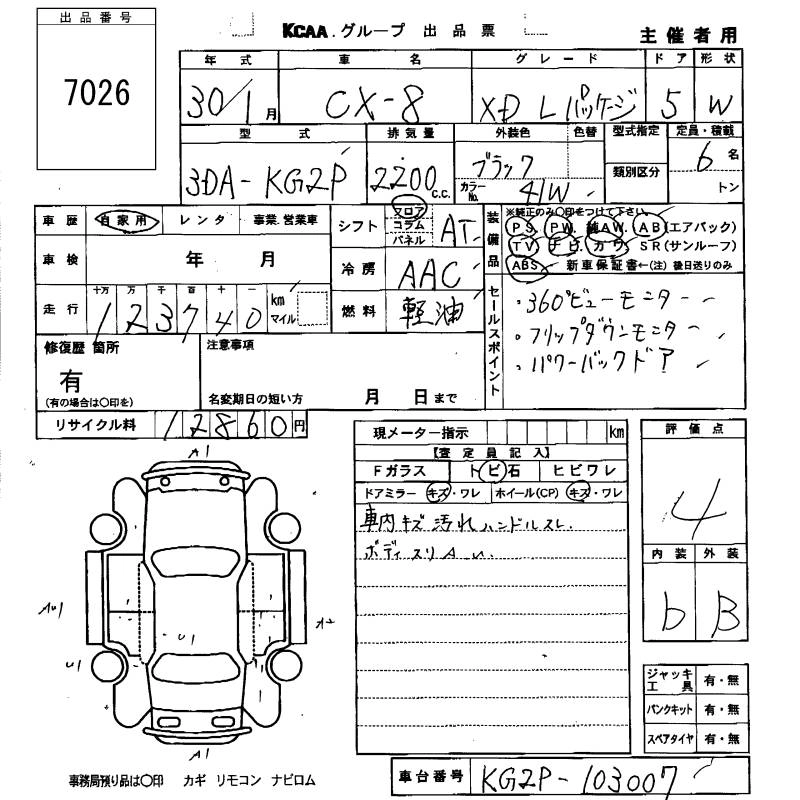 出品番号
7026
KCAA.グループ 出品票
主催者用
年式 車名 グレード ドア 形状
30/1月 CX-8 XD Lパッケージ 5 W
型式 排気量 外装色 色替 型式指定 定員・積載
3DA-KG2P 2200 C.C. ブラック 6名
カラーNo. 41W 類別区分 トン
車歴 自家用 レンタ 事業.営業車
シフト フロア コラム パネル AT
装備品
※純正のみ○印をつけて下さい。
PS. PW. 純AW. AB(エアバック)
TV ナビ カワ SR(サンルーフ)
ABS 新車保証書←(注)後日送りのみ
車検 年 月
冷房 AAC
走行 十万 万 千 百 十 一
123740 km マイル
燃料 軽油
セールスポイント
・360°ビューモニター
・フリップダウンモニター
・パワーバックドア
修復歴 箇所
有
(有の場合は○印を)
注意事項
名変期日の短い方 月 日まで
リサイクル料 12860円
現メーター指示 km
【査定員記入】
Fガラス トビ石 ヒビワレ
ドアミラー キズ・ワレ ホイール(CP) キズ・ワレ
車内キズ汚れハンドルスレ
ボディスリ
評価点
4
内装 外装
b B
A1
AU1
A2
U1
U1
A1
ジャッキ工具 有・無
パンクキット 有・無
スペアタイヤ 有・無
事務局預り品は○印 カギ リモコン ナビロム
車台番号 KG2P-103007